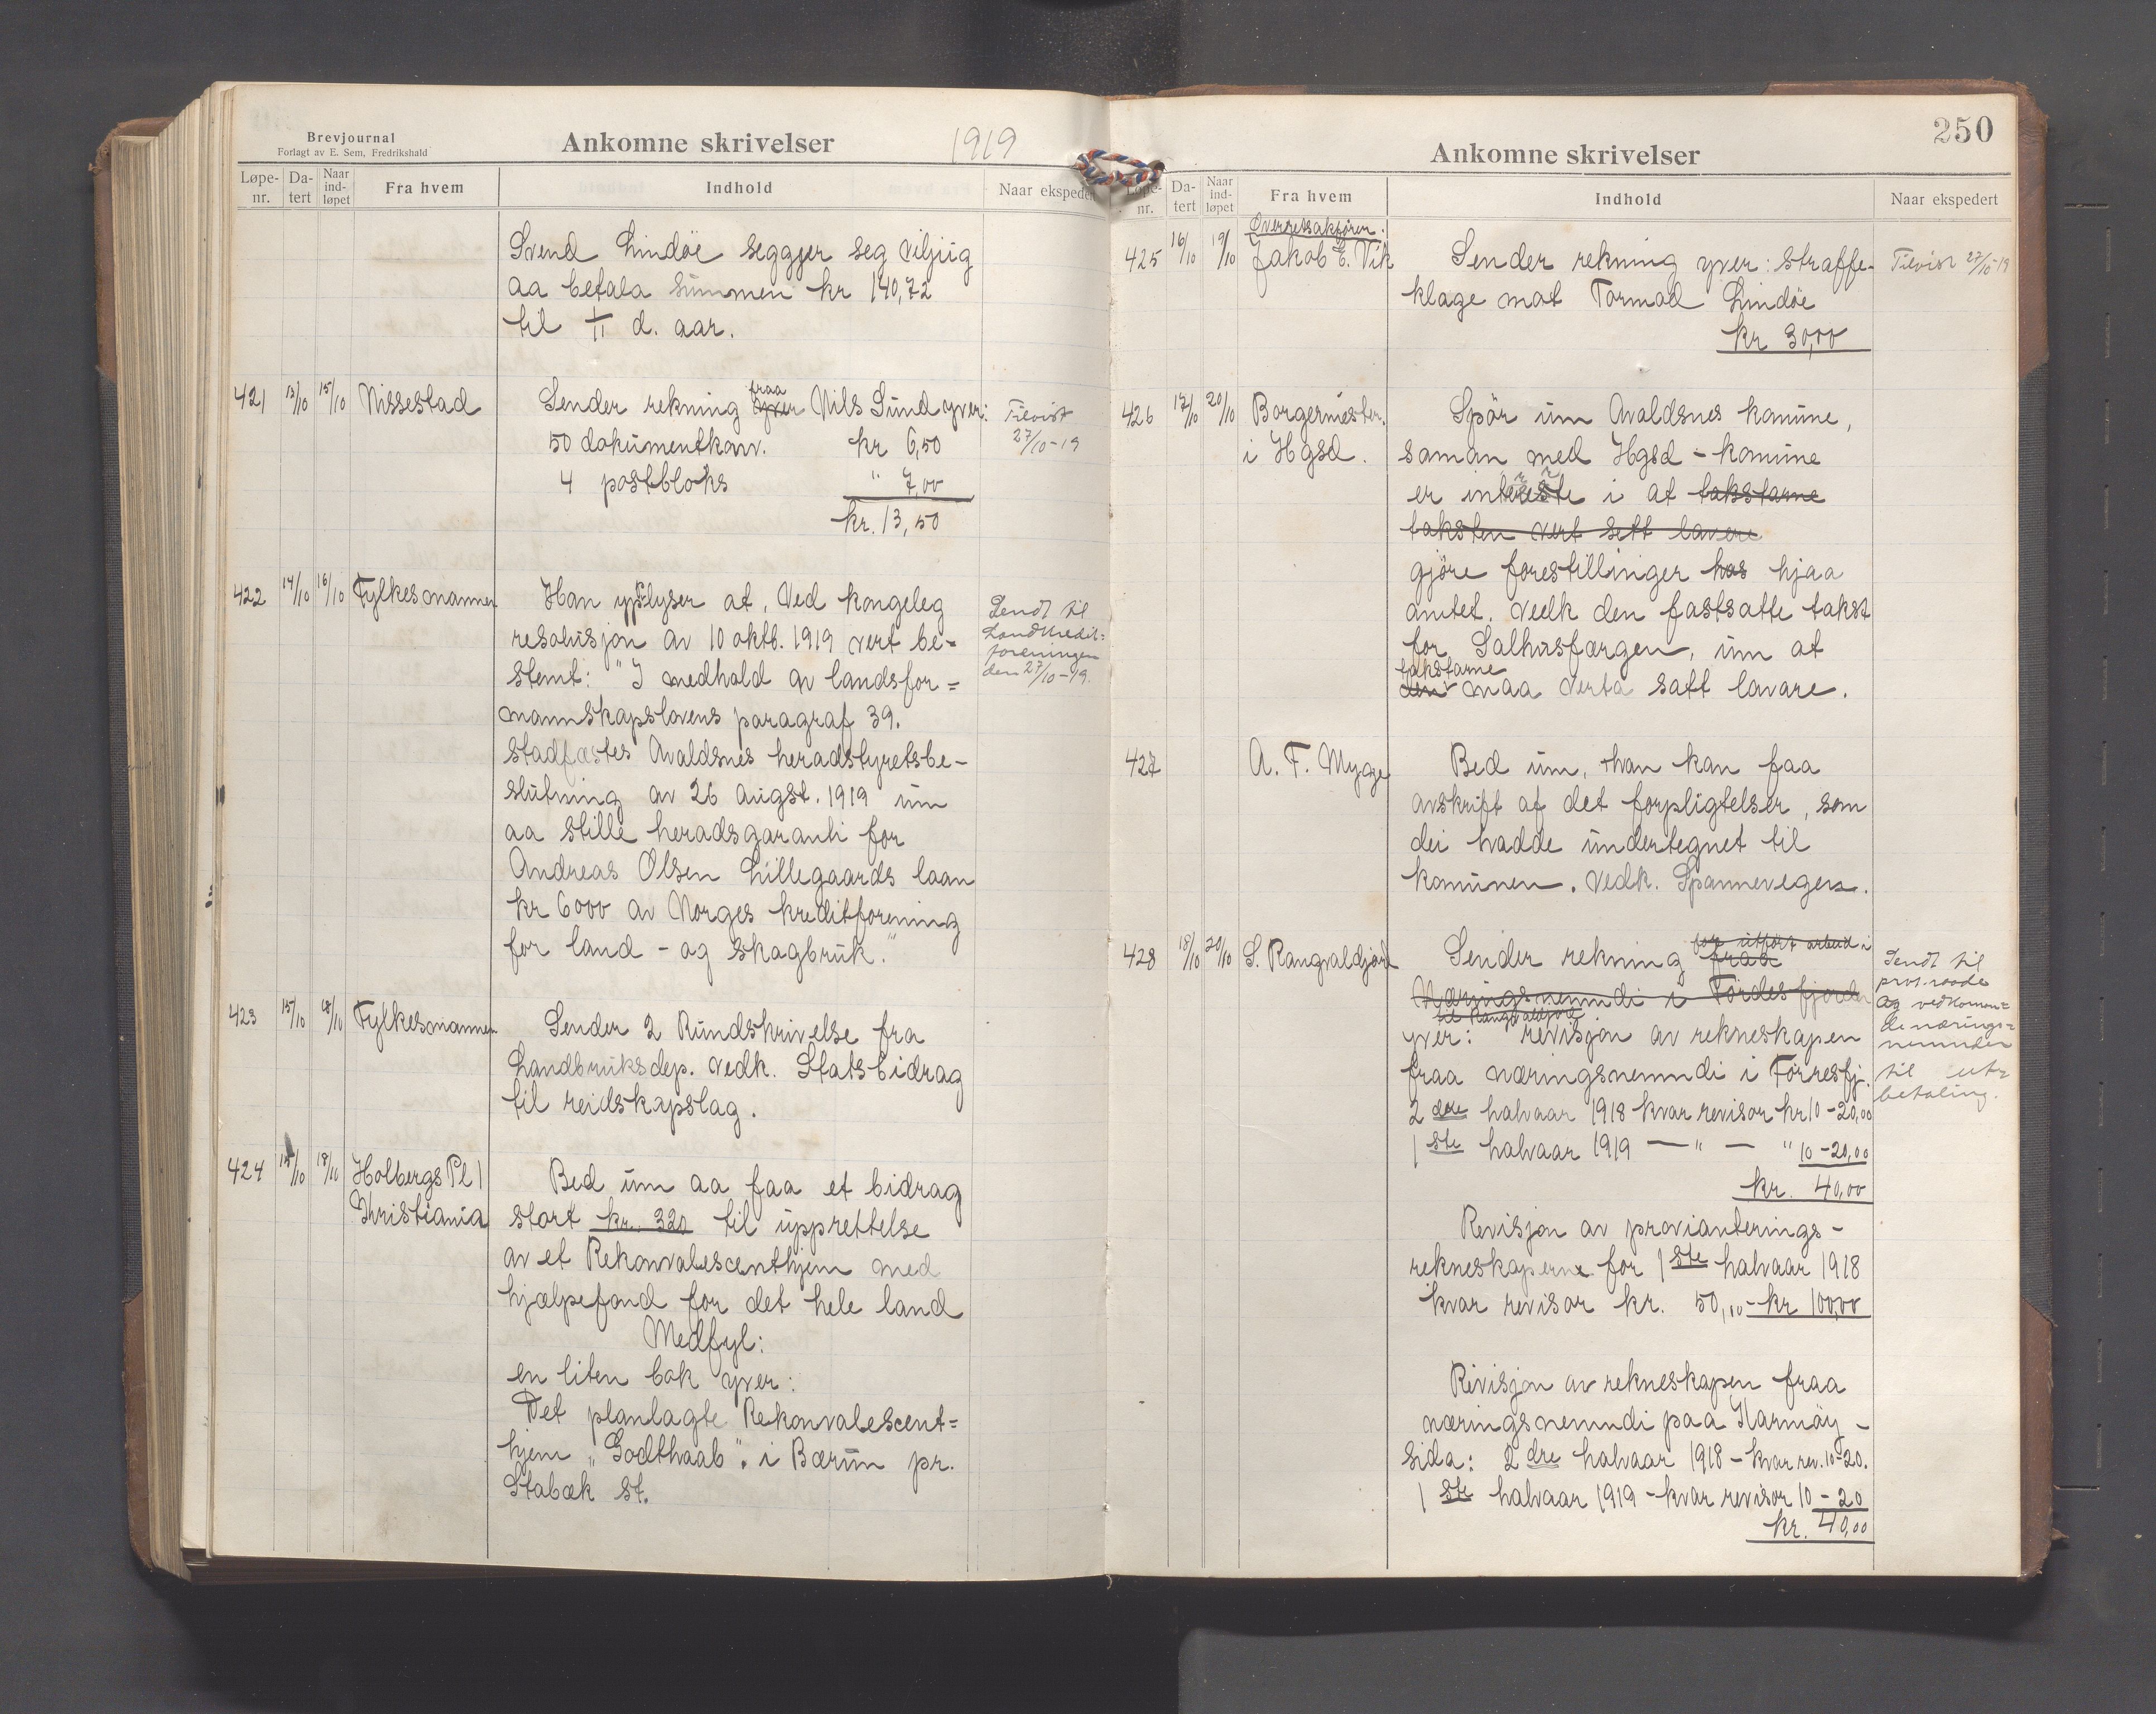 Brevjournal
Forlagt av E. Sem, Fredrikshald
Ankomne skrivelser 1919
Løpe-nr. Da-tert Naar ind-løpet Fra hvem Indhold Naar ekspedert
Svend Lindöe seggjer seg viljug
aa betala summen kr 140,72
til 1/11 d. aar.
421 13/10 15/10 Nissestad Sender rekning yver fraa Nils Sund yver: Tilvist
50 dokumentkonv. kr 6,50 27/10-19
4 postbloks " 7,00
kr. 13,50
422 14/10 16/10 Fylkesmannen Han upplyser at, Ved kongeleg Sendt til
resolusjon av 10 oktb. 1919 vert be- Landkredit-
stemt: "I medhold av landsfor= foreningen
mannskapslovens paragraf 39. den 27/10-19.
stadfæstes Avaldsnes heradstyretsbe-
slutning av 26 augst. 1919 um
aa stille heradsgaranti for
Andreas Olsen Lillegaards laan
kr 6000 av Norges kreditforening
for land - og skogbruk."
423 15/10 18/10 Fylkesmannen Sender 2 Rundskrivelse fra
Landbruksdep. vedk. Statsbidrag
til reidskapslag.
424 15/10 18/10 Holbergs Pl 1 Bed um aa faa et bidrag
Khristiania stort kr. 320 til upprettelse
av et Rekonvalescenthjem med
hjælpefond for det hele land
Medfyl:
en liten bok yver:
Det planlagte Rekonvalescent=
hjem „Godthaab". i Bærum pr.
Stabæk st.
250
Ankomne skrivelser
Løpe-nr. Da-tert Naar ind-løpet Fra hvem Indhold Naar ekspedert
Overretsakförer.
425 16/10 19/10 Jakob E. Vik Sender rekning yver: straffe- Tilvist 27/10-19
klage mot Tormod Lindöe
kr 30,00
426 17/10 20/10 Borgermester. Spör um Avaldsnes komune,
i Hgsd. saman med Hgsd - komune
er intereste i at takstarne
taksten vert sett lavere
gjöre forestillinger hos hjaa
amtet. vedk den fastsatte takst
for Salhusfærgen, um at
takstarne
den maa verta satt lavare.
427 A. F. Mygge Bed um, han kan faa
avskrift af det forpligtelser, som
dei hadde undertegnet til
komunen. vedk. Spannevegen.
for utfört arbeid i
428 18/10 20/10 S. Rangvaldjord Sender rekning fraa Sendt til
Næringsnemndi i Fördesfjorden prov.raade
til Rangvaldjord og vedkomen=
yver: revisjon av rekneskapen de nærings=
nemnder
fraa næringsnemndi i Förresfj. til ut=
2 dre halvaar 1918 kvar revisor kr 10 - 20,00 betaling.
1 ste halvaar 1919 — " — " 10 - 20,00
kr. 40,00
Revisjon av provianterings -
rekneskaperne for 1 ste halvaar 1918
kvar revisor kr. 50,00 - kr 100,00
Rivisjon av rekneskapen fraa
næringsnemndi paa Karmöy -
sida: 2 dre halvaar 1918 - kvar rev. 10-20.
1 ste halvaar 1919 - kvar revisor 10 - 20
kr. 40,00